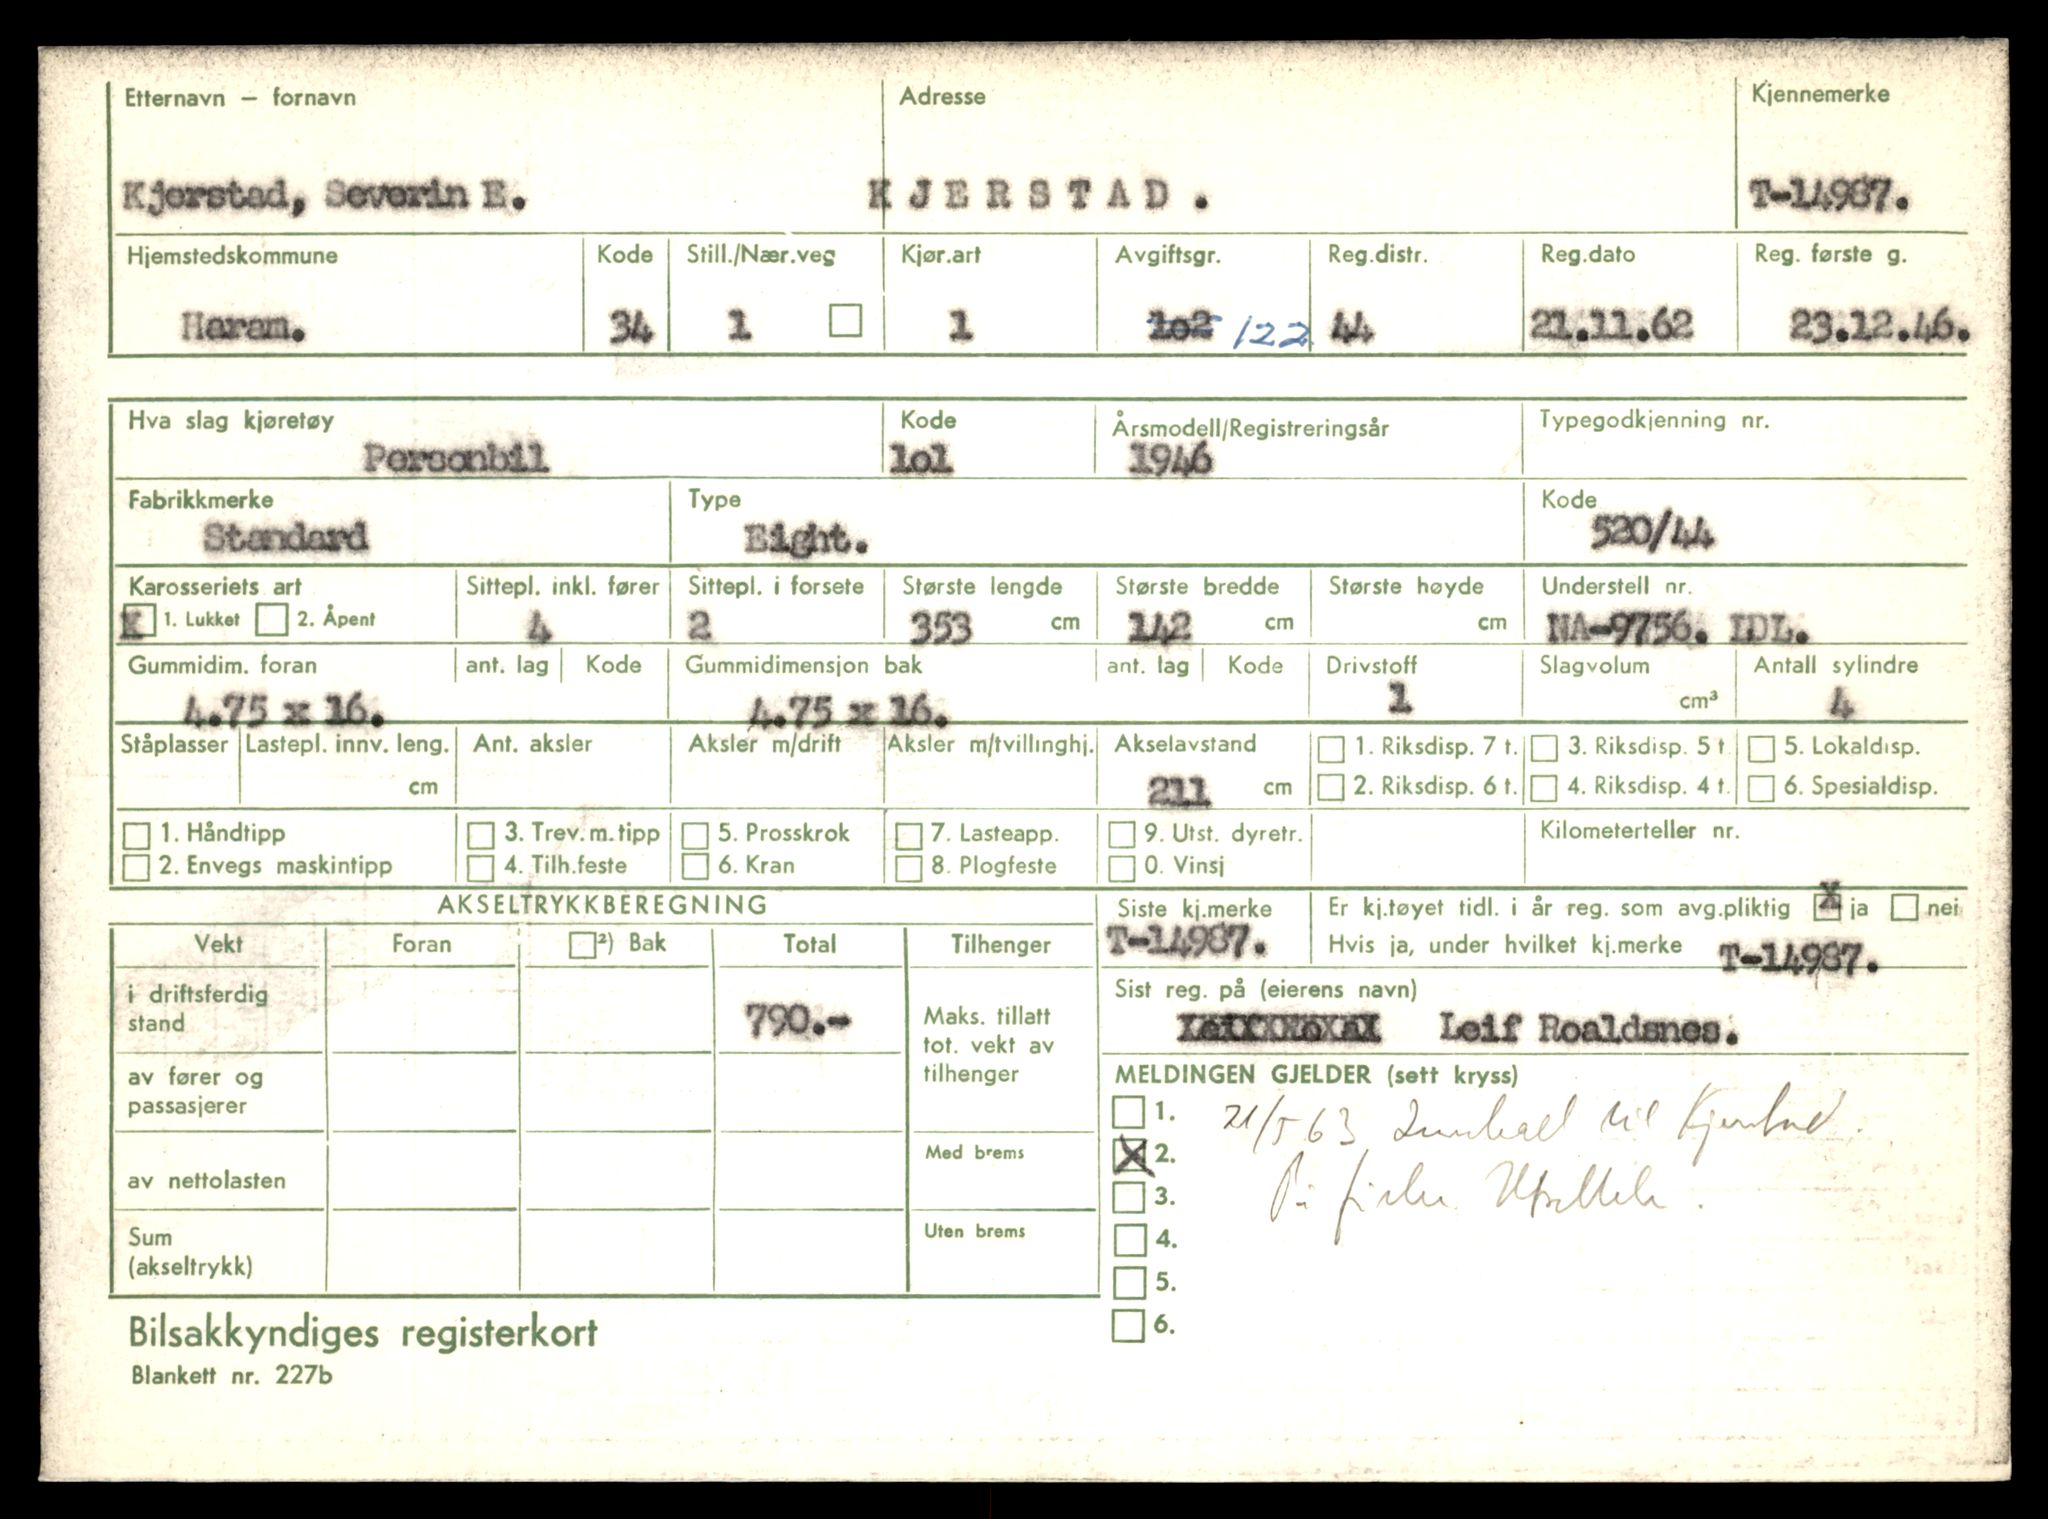 Etternavn – fornavn Adresse Kjennemerke
Kjerstad, Severin E. KJERSTAD. T-14987.
Hjemstedskommune Kode Still./Nær.veg Kjør.art Avgiftsgr. Reg.distr. Reg.dato Reg. første g.
Haram. 34 1 1 1o2 122 44 21.11.62 23.12.46.
Hva slag kjøretøy Kode Årsmodell/Registreringsår Typegodkjenning nr.
Personbil 1o1 1946
Fabrikkmerke Type Kode
Standard Eight. 520/44
Karosseriets art Sittepl. inkl. fører Sittepl. i forsete Største lengde Største bredde Største høyde Understell nr.
X 1. Lukket 2. Åpent 4 2 353 cm 142 cm cm NA-9756. IDL.
Gummidim. foran ant. lag Kode Gummidimensjon bak ant. lag Kode Drivstoff Slagvolum Antall sylindre
4.75 x 16. 4.75 x 16. 1 cm³ 4
Ståplasser Lastepl. innv. leng. Ant. aksler Aksler m/drift Aksler m/tvillinghj. Akselavstand 1. Riksdisp. 7 t. 3. Riksdisp. 5 t. 5. Lokaldisp.
cm 211 cm 2. Riksdisp. 6 t. 4. Riksdisp. 4 t. 6. Spesialdisp.
1. Håndtipp 3. Trev.m.tipp 5. Prosskrok 7. Lasteapp. 9. Utst. dyretr. Kilometerteller nr.
2. Envegs maskintipp 4. Tilh.feste 6. Kran 8. Plogfeste 0. Vinsj
AKSELTRYKKBEREGNING
Siste kj.merke Er kj.tøyet tidl. i år reg. som avg.pliktig X ja nei
T-14987. Hvis ja, under hvilket kj.merke T-14987.
Vekt Foran ²) Bak Total Tilhenger
Sist reg. på (eierens navn)
Leif Roaldsnes.
i driftsferdig
stand 790.-
Maks. tillatt
tot. vekt av
tilhenger
av fører og
passasjerer
MELDINGEN GJELDER (sett kryss)
1. 21/5 63 til Kjerstad.
X 2. På
3.
4.
5.
6.
Med brems
av nettolasten
Uten brems
Sum
(akseltrykk)
Bilsakkyndiges registerkort
Blankett nr. 227b